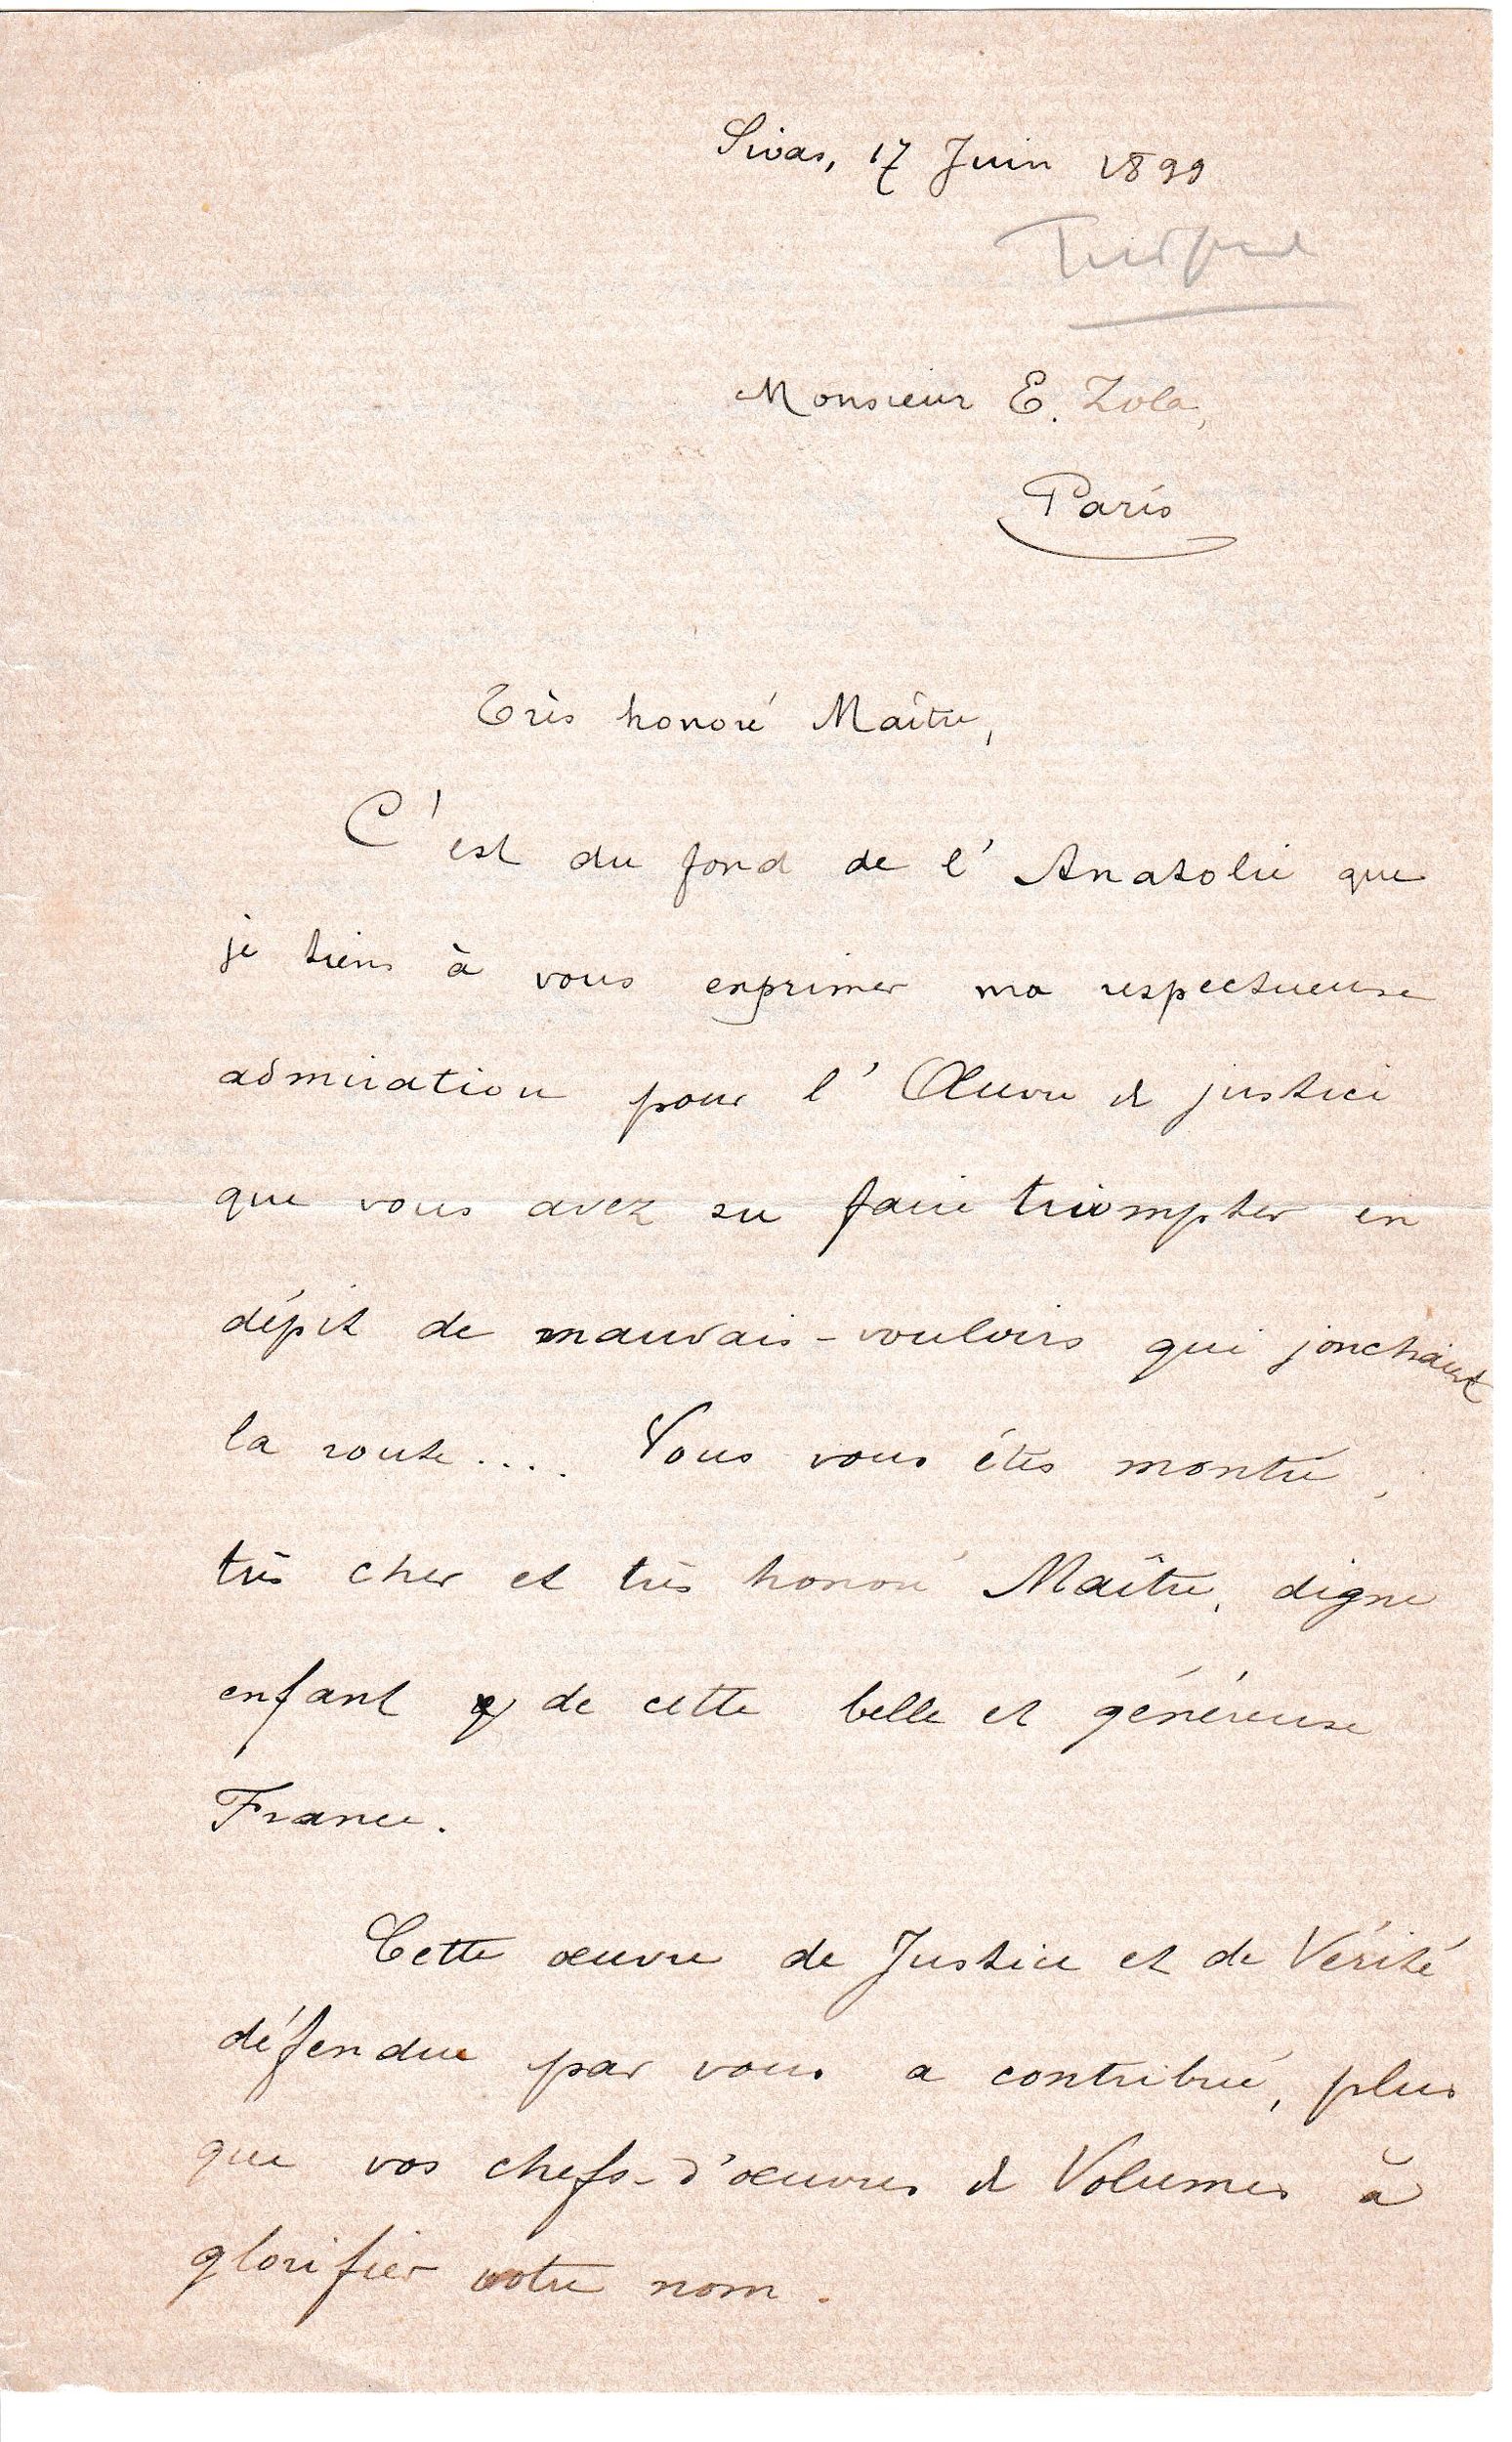 Sivas, 17 Juin 1899
Monsieur E. Zola,
Paris
Très honoré Maître,
C'est du fond de l'Anatolie que
je tiens à vous exprimer ma respectueuse
admiration pour l'Œuvre de justice
que vous avez su faire triompher en
dépit de mauvais-vouloirs qui jonchaient
la route.... Vous vous êtes montré,
très cher et très honoré Maître, digne
enfant de cette belle et généreuse
France.
Cette œuvre de Justice et de Vérité
défendue par vous a contribué, plus
que vos chefs-d'œuvres de Volumes à
glorifier votre nom.